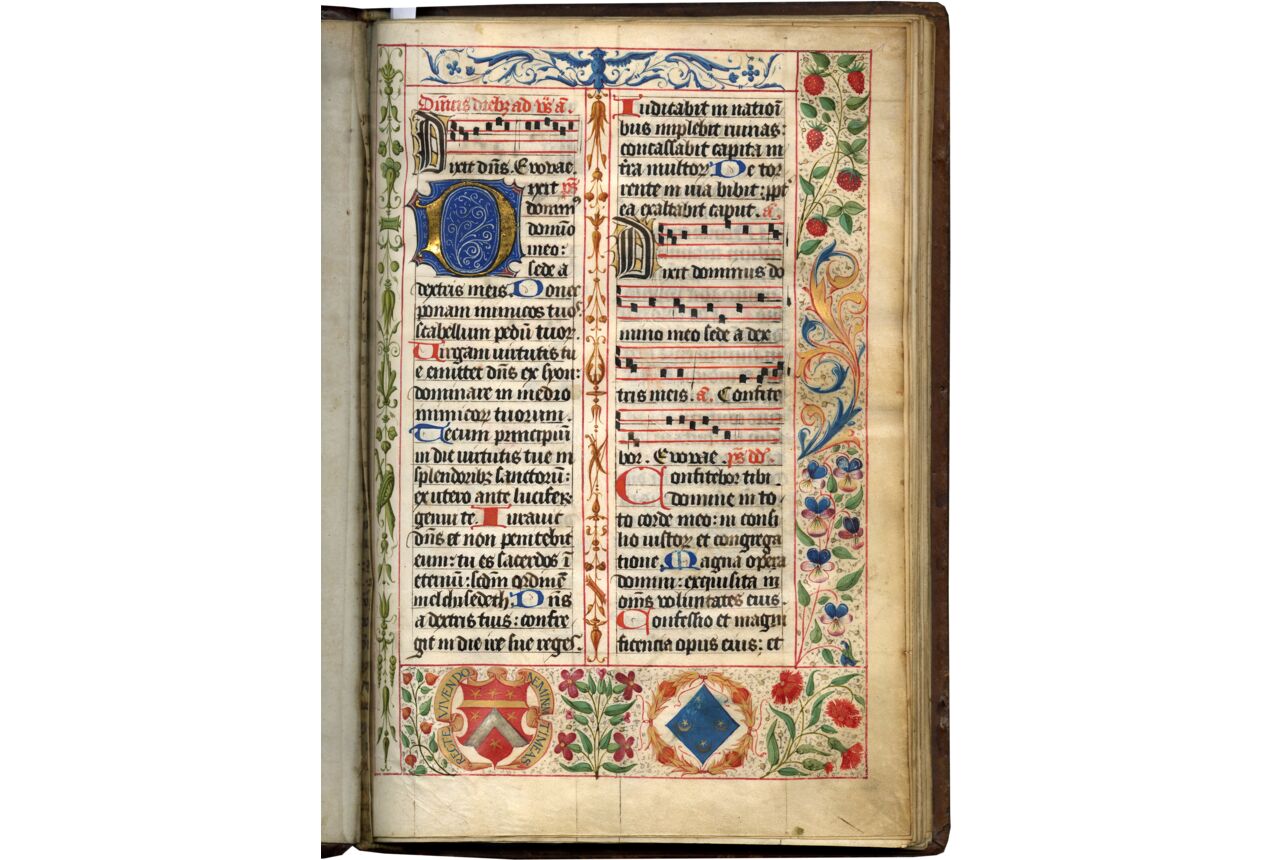 Dixit dñs. Evovae.
ixit ps
domin⁹
domino
meo:
sede a
dextris meis. Donec
ponam inimicos tuos.
scabellum pedū tuoꝝ.
Virgam virtutis tu
e emittet dñs ex syon:
dominare in medio
inimicoꝝ tuorum.
Tecum principiū
in die virtutis tue in
splendoribꝫ sanctorū:
ex utero ante lucifeꝝ
genui te. Iuravit
dñs et non penitebit
eum: tu es sacerdos ī
eternū: scdm ordinē
melchisedech. Dñs
a dextris tuis: confre
git in die ire sue reges.
Iudicabit in natioī
bus implebit ruinas:
conᵭassabit capita in
t̄ra multoꝝ. De tor
rente in via bibit: ꝓpt
ea exaltabit caput. a.
Dixit dominus do
mino meo sede a dex
tris meis. a. Confite
bor. Evovae. ps dd.
Confitebor tibi
domine in to
to corde meo: in consi
lio iustoꝝ et congrega
tione. Magna opera
domini: exquisita in
om̄s voluntates eius.
Confessio et magni
ficencia opus eius: et
RECTE VIVENDO NEMINEM TIMEAS